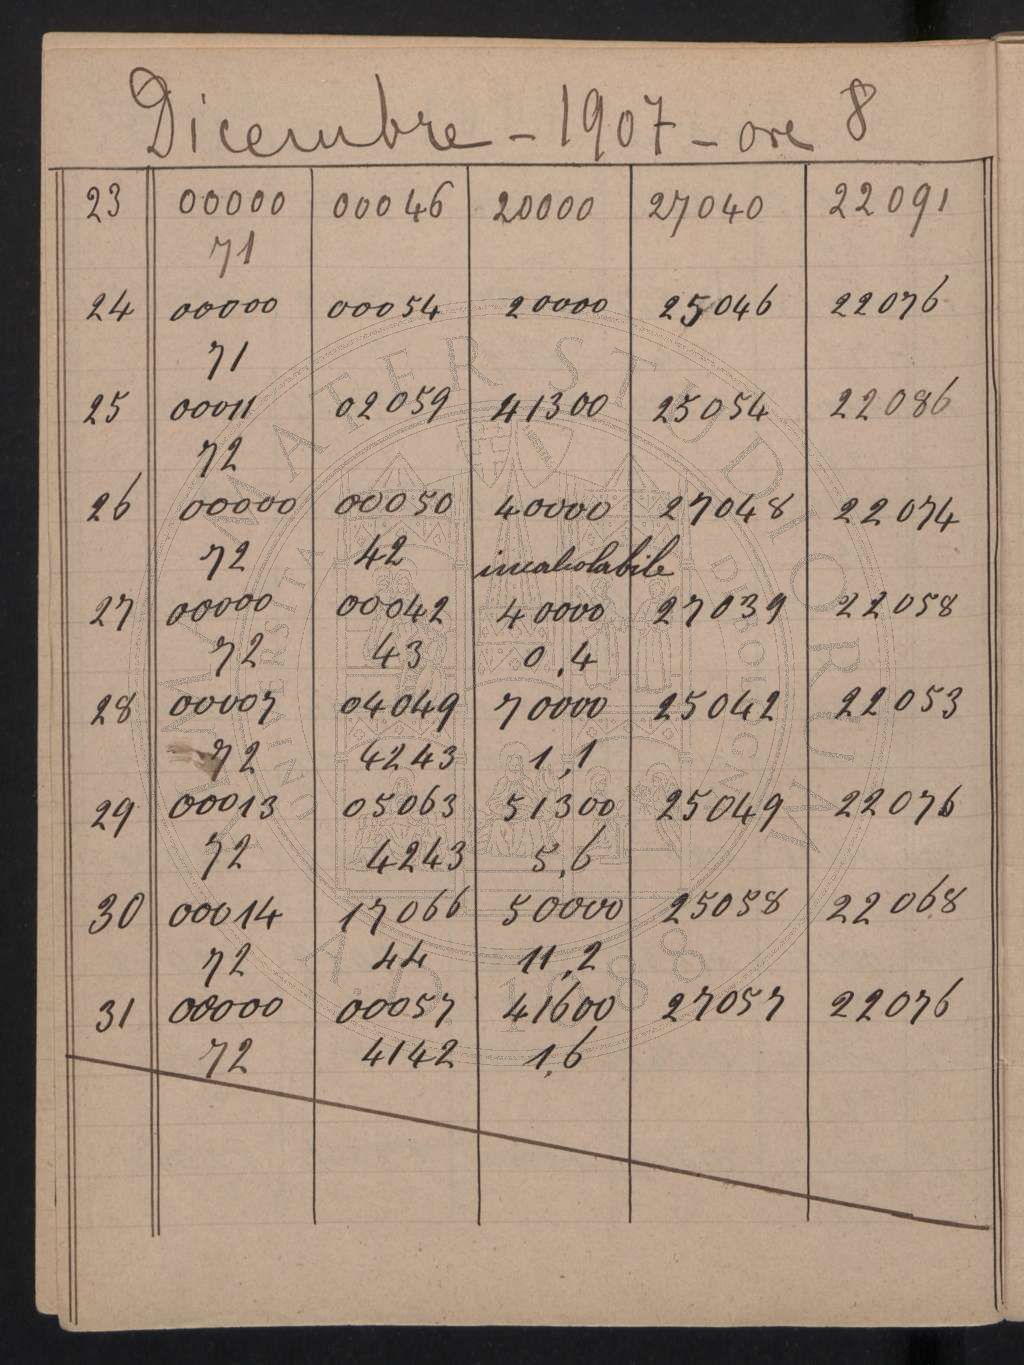 Dicembre - 1907 - ore 8
23 00000 00046 20000 27040 22091
71
24 00000 00054 20000 25046 22076
71
25 00011 02059 41300 25054 22086
72
26 00000 00050 40000 27048 22074
72 42 incalcolabile
27 00000 00042 40000 27039 22058
72 43 0,4
28 00007 04049 70000 25042 22053
72 4243 1,1
29 00013 05063 51300 25049 22076
72 4243 5,6
30 00014 17066 50000 25058 22068
72 44 11,2
31 00000 00057 41600 27057 22076
72 4142 1,6
ALMA MATER STUDIORUM
A.D. 1088